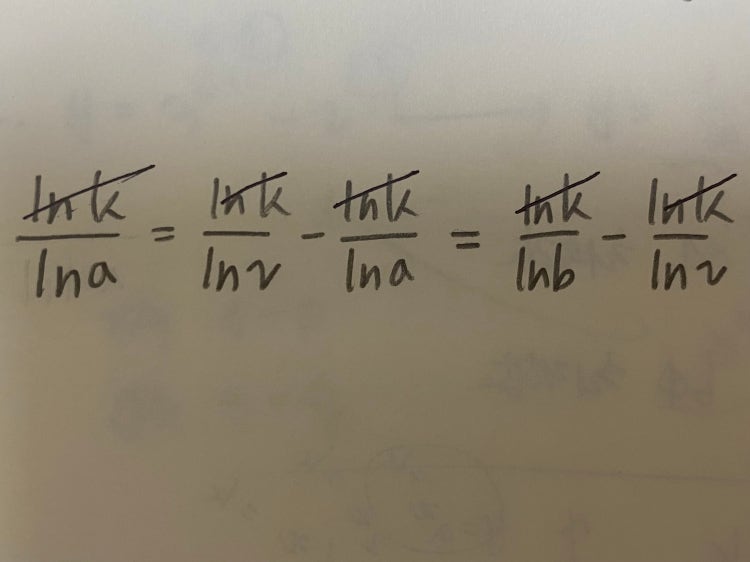 lnk/lna = lnk/ln2 - lnk/lna = lnk/lnb - lnk/ln2